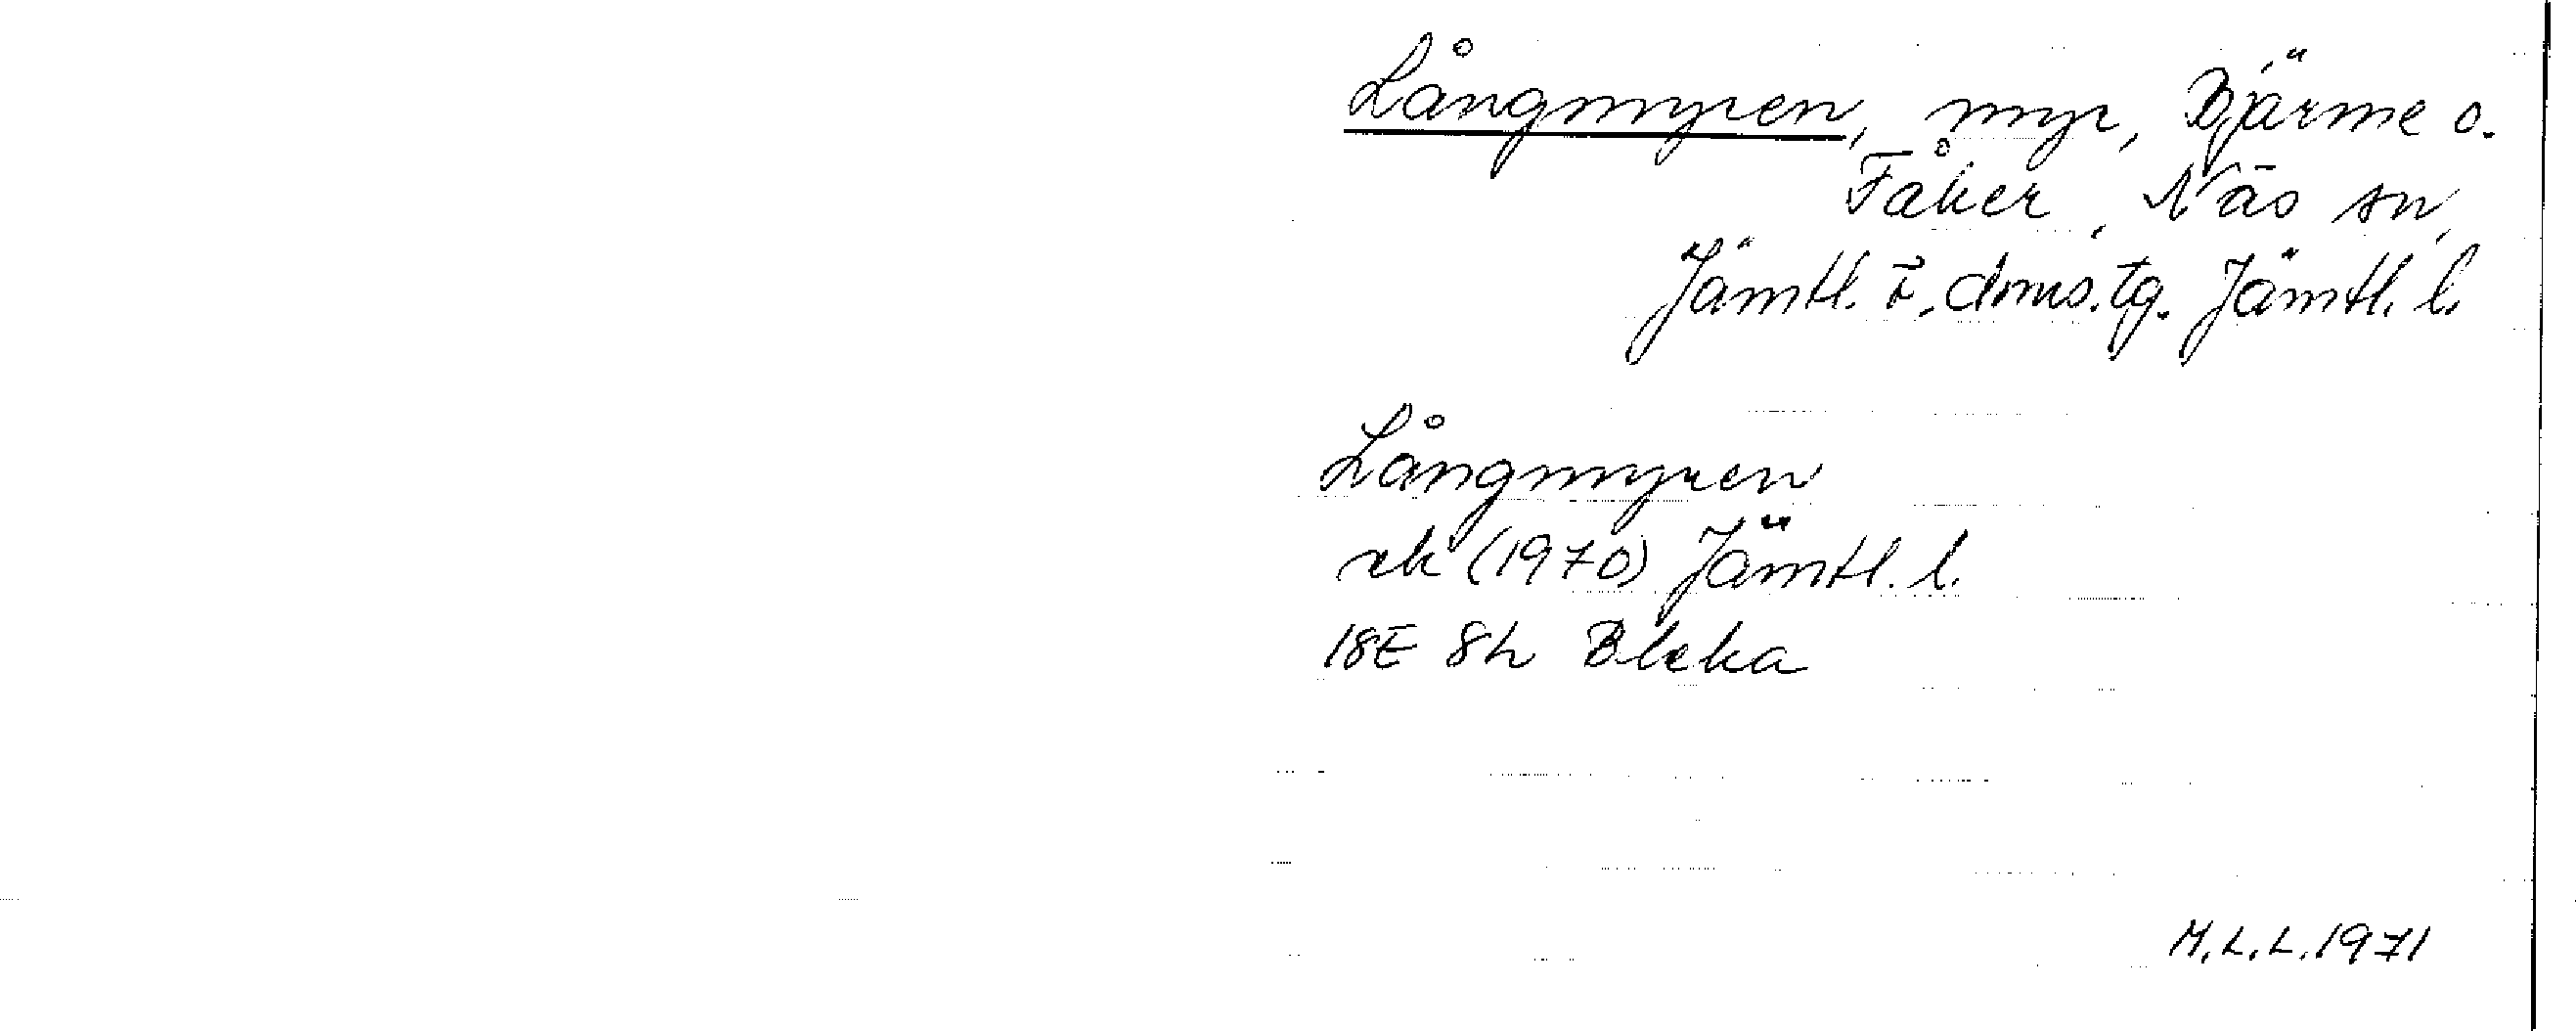 Långmyren, myr, Bjärme o.
Fåker, Näs sn,
Jämtl. ö. doms.tg. Jämtl. l.
Långmyren
rk (1970) Jämtl. l.
18E 8h Bleka
M.L.L. 1971